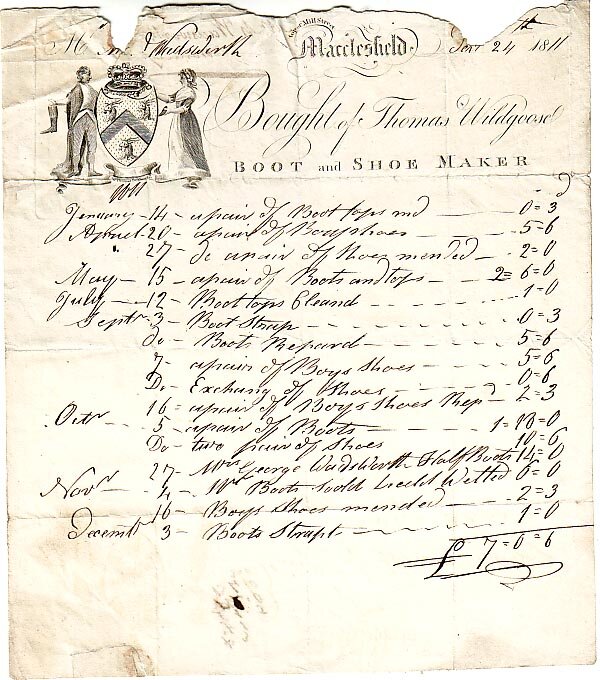 Mill Street
Macclesfield
Wadsworth
24 1811
Bought of Thomas Wildgoose
BOOT and SHOE MAKER
1811
January - 14 - a pair of Boot tops md - 0=3
April - 20 - a pair of Boys shoes - 5=6
27 - Do a pair of shoes mended - 2=0
May - 15 - a pair of Boots and tops - 2=6=0
July - 12 - Boot tops Cleand - 1=0
Septr 3 - Boot Strap - 0=3
Do - Boots Repard - 5=6
7 - a pair of Boys Shoes - 5=6
Do - Exchang of Shoes - 0=6
16 - a pair of Boys Shoes Rep - 2=3
Octr 5 - a pair of Boots - 1=18=0
Do - two pair of Shoes 10=6
27 - George Wadsworth Half Boots 14=0
Novr - 4 - Boots Welted 6=0
16 - Boys Shoes mended - 2=3
Decembr 3 - Boots Strapt - 1=0
£ 7=0=6